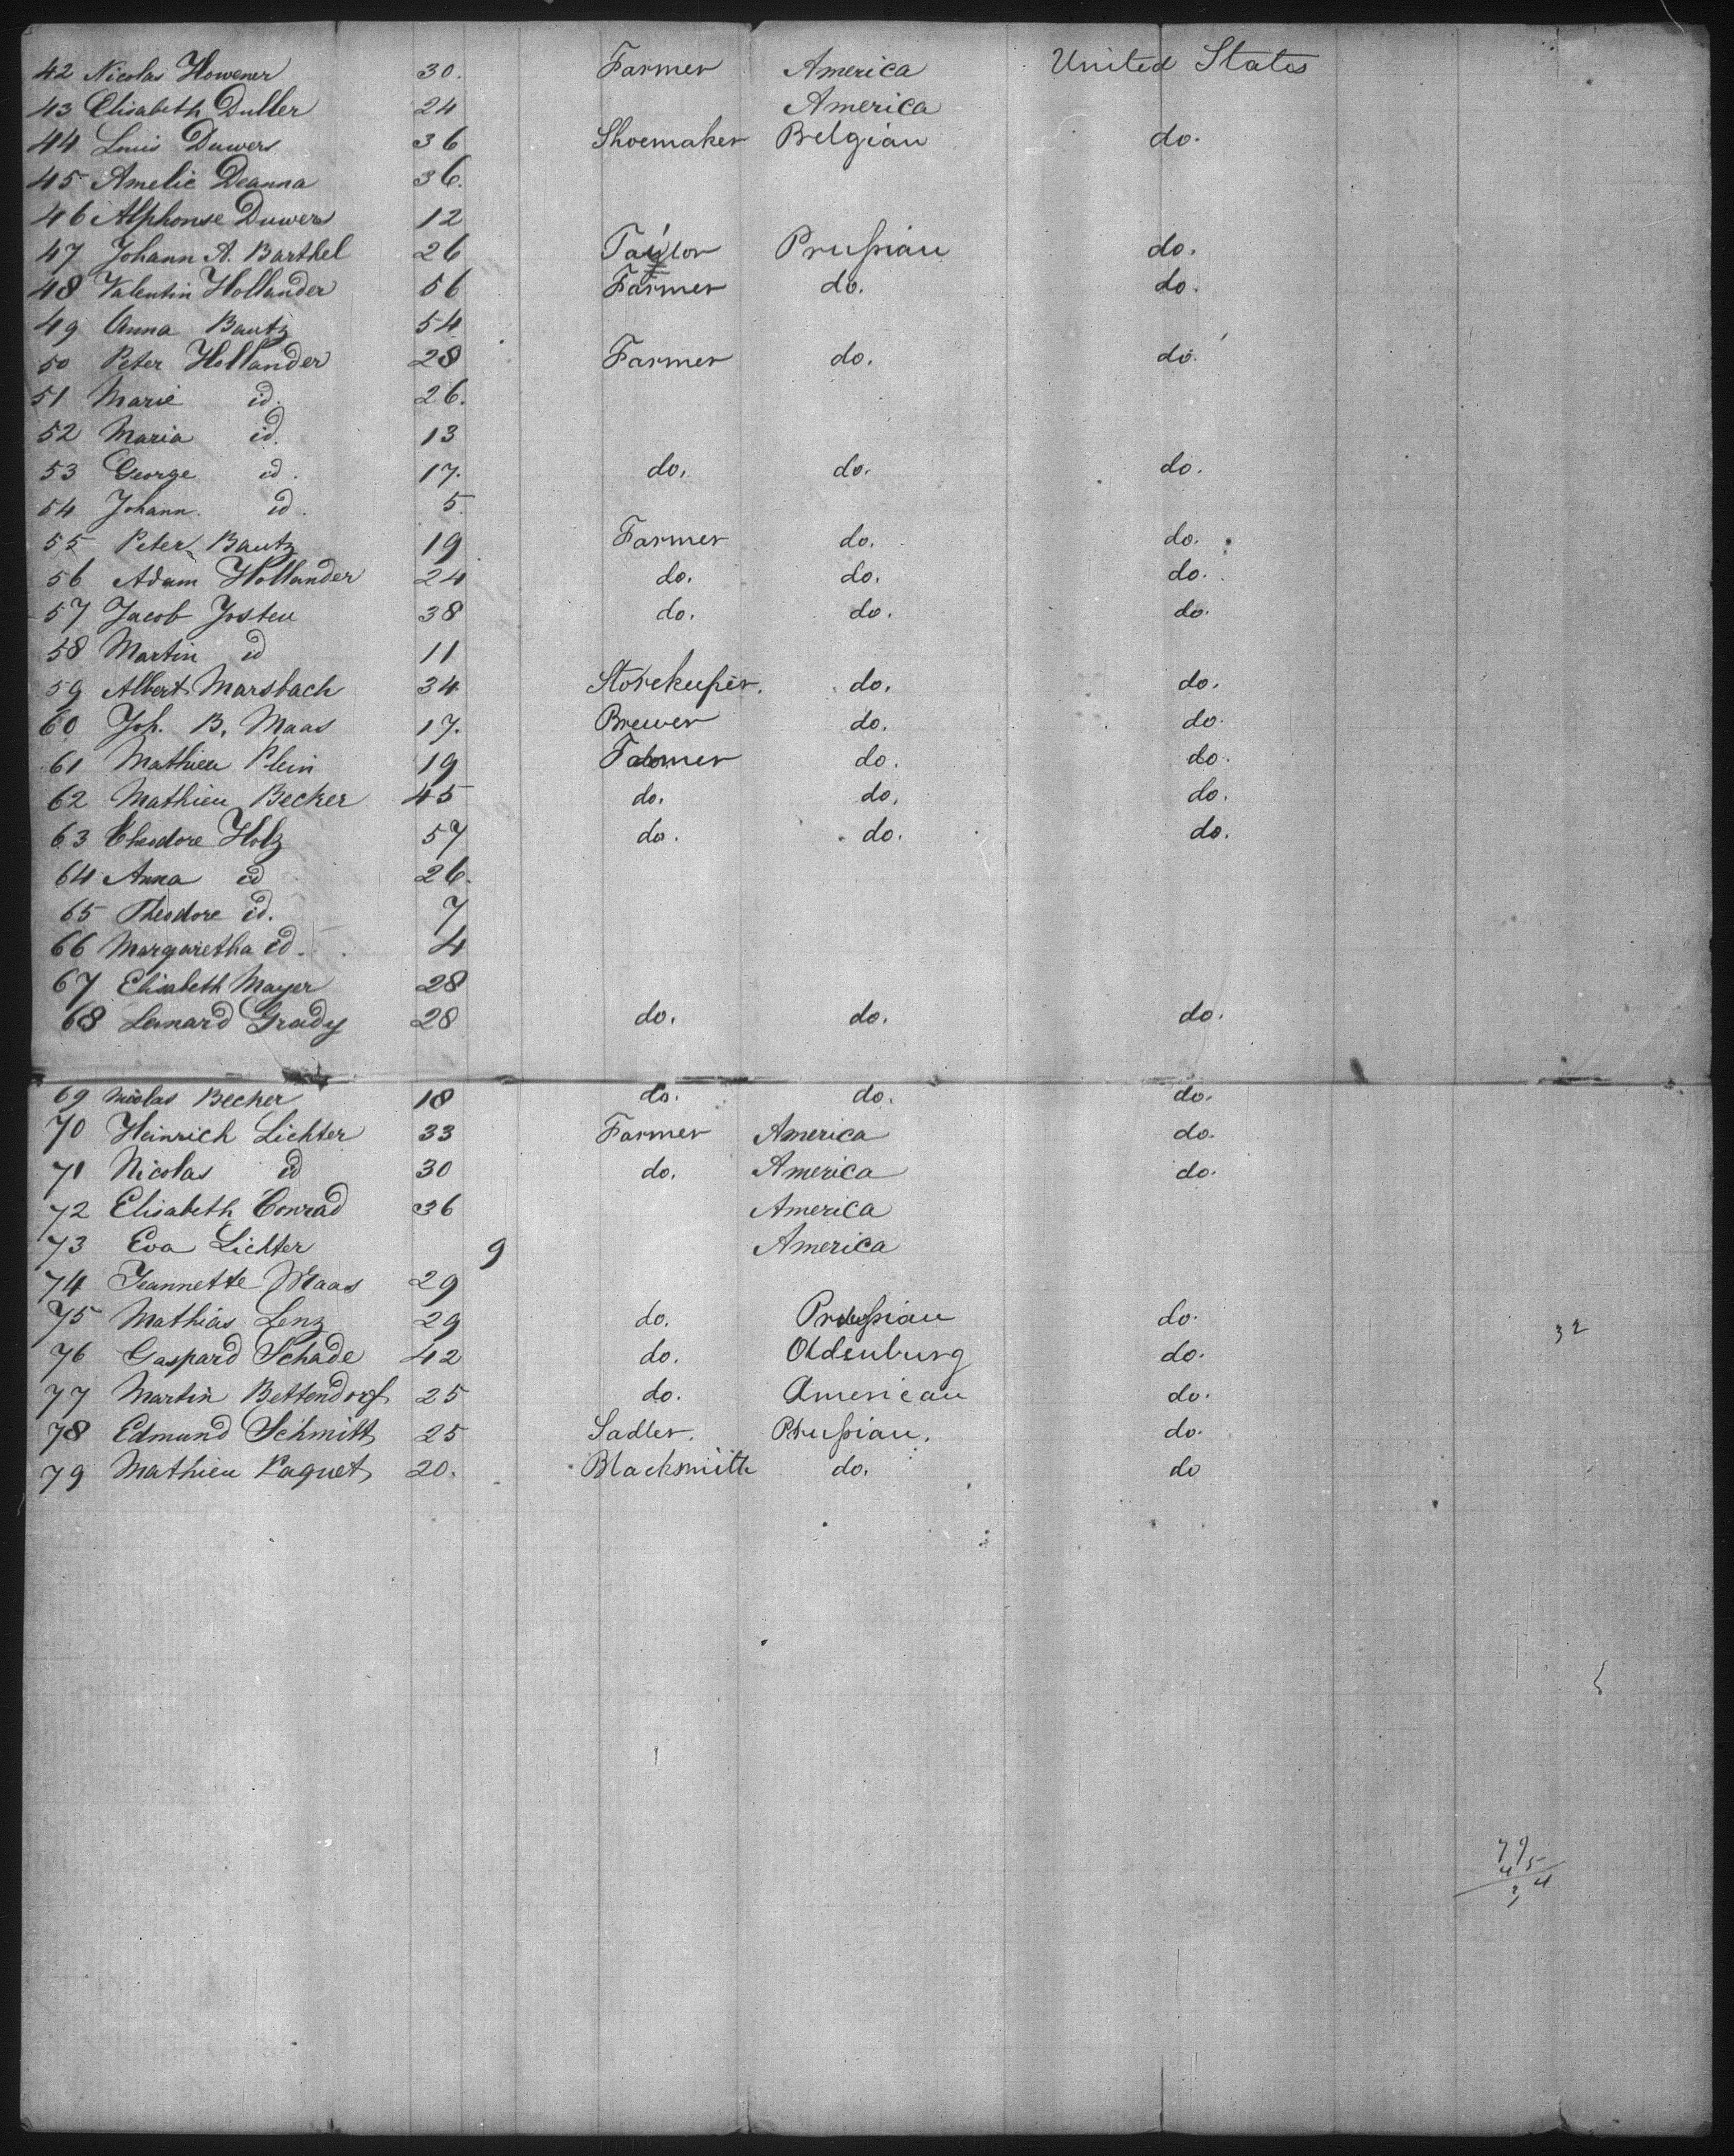 42 Nicolas Howener 30. Farmer America United States
43 Elisabeth Duller 24 America
44 Louis Duwers 36 Shoemaker Belgian do.
45 Amelie Deanna 36.
46 Alphonse Duwers 12
47 Johann A. Barthel 26 Taylor Prussian do.
48 Valentin Hollander 56 Farmer do. do.
49 Anna Bautz 54
50 Peter Hollander 28 Farmer do. do.
51 Marie id. 26.
52 Maria id. 13
53 George id. 17. do. do. do.
54 Johann id. 5.
55 Peter Bautz 19 Farmer do. do.
56 Adam Hollander 24 do. do. do.
57 Jacob Josten 38 do. do. do.
58 Martin id 11
59 Albert Marsbach 34 Storekeeper. do. do.
60 Joh. B. Maas 17. Brewer do. do.
61 Mathieu Plein 19 Farmer do. do.
62 Mathieu Becker 45 do. do. do.
63 Theodore Holz 57 do. do. do.
64 Anna id 26.
65 Theodore id. 7
66 Margaretha id. 4
67 Elisabeth Mayer 28
68 Leonard Grady 28 do. do. do.
69 Nicolas Becker 18 do. do. do.
70 Heinrich Lichter 33 Farmer America do.
71 Nicolas id 30 do. America do.
72 Elisabeth Conrad 36 America
73 Eva Lichter 9 America
74 Jeannette Maas 29
75 Mathias Lenz 29 do. Prussian do.
32
76 Gaspard Schade 42 do. Oldenburg do.
77 Martin Bettendorf 25 do. American do.
78 Edmund Schmitt 25 Sadler. Prussian. do.
79 Mathieu Paquet 20. Blacksmith do. do
79
45
34